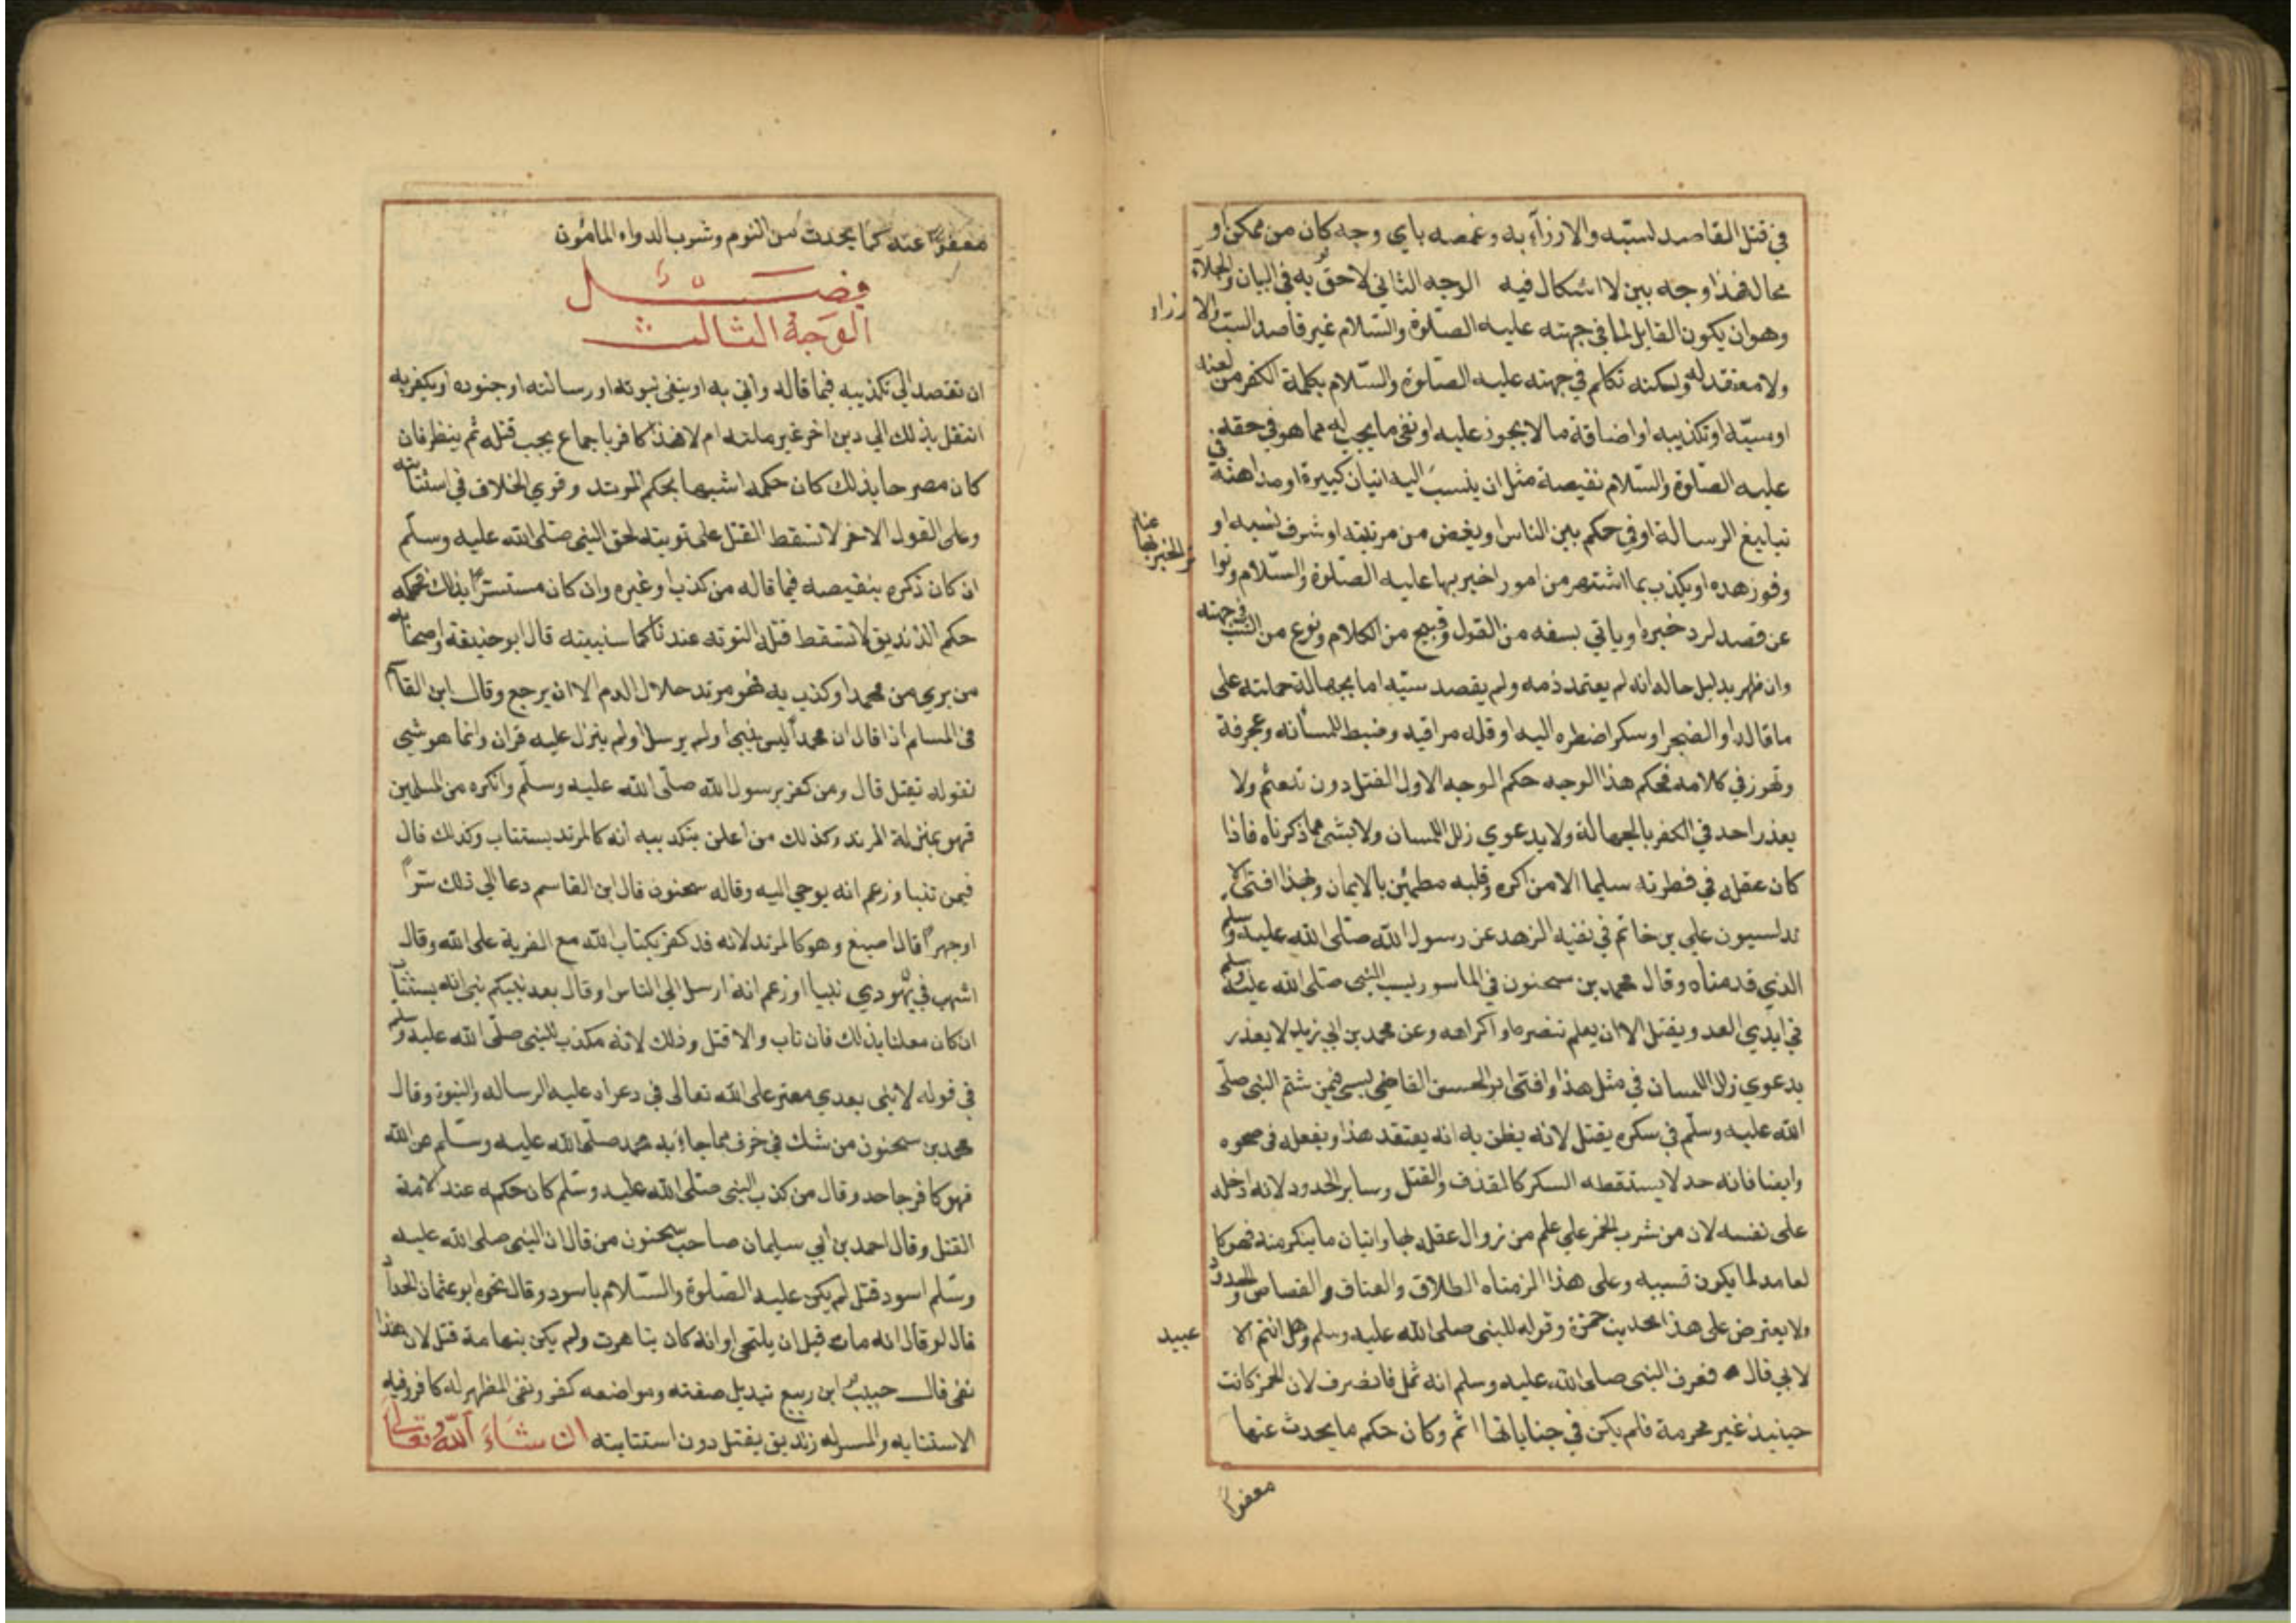 في قتل القاصد لسبه والازرآء به وغمصه باي وجه كان من ممكن او
محال فهذا وجه بين لا اشكال فيه الوجه الثاني لاحق به في البيان والجلاء
وهو ان يكون القايل لما في جهته عليه الصلوة والسلام غير قاصد السب والا زراء
ولا معتقد له ولكنه تكلم في جهته عليه الصلوة والسلام بكلمة الكفر من لعنه
او سبه او تكذيبه او اضافة ما لا يجوز عليه او نفي ما يجب له مما هو في حقه
عليه الصلوة والسلام نقيصة مثل ان ينسب اليه اتيان كبيرة او مداهنة في
تبليغ الرسالة او في حكم بين الناس او يغض من مرتبته او شرف نسبه او
وفور هده او يكذب بما اشتهر من امور اخبر بها عليه الصلوة والسلام وتوا
تر الخبر بها عنه
عن قصد لرد خبره او ياتي بسفه من القول وقبيح من الكلام ونوع من السب في جهته
وان ظهر بدليل حاله انه لم يعتمد ذمه ولم يقصد سبه اما بجهالة حملته على
ما قاله او الضجر او سكر اضطره اليه او قله مراقبه وضبط للسانه وعجرفة
وتهور في كلامه فحكم هذا الوجه حكم الوجه الاول القتل دون تلعثم ولا
يعذر احد في الكفر بالجهالة ولا بدعوي زلل اللسان ولا بشي مما ذكرناه فاذا
كان عقله في فطرته سليما الا من اكره وقلبه مطمئن بالايمان وبهذا افتي الا
ندلسيون علي بن خاتم في نفيه الزهد عن رسول الله صلى الله عليه وسلم
الذي قدمناه وقال محمد بن سحنون في الماسور يسب النبي صلى الله عليه وسلم
في ايدي العدو يقتل الا ان يعلم تنصره او اكراهه وعن محمد بن ابي زيد لا يعذر
بدعوي زلل اللسان في مثل هذا وافتى ابو الحسن القاضي بسي فيمن شتم النبي صلى
الله عليه وسلم في سكره يقتل لانه يظن به انه يعتقد هذا ويفعله في صحوه
وايضا فانه حد لا يسقطه السكر كالقذف والقتل وسابر الحدود لانه ادخله
على نفسه لان من شرب الخمر علي علم من زوال عقله بها واتيان ما ينكر منه فهو كا
لعامد لما يكون تسببه وعلى هذا الزمناه الطلاق والعتاق والقصاص والحدود
ولا يعترض على هذا بحديث حمزة وقوله للنبي صلى الله عليه وسلم وهل انتم الا عبيد
لابي قال فعرف النبي صلى الله عليه وسلم انه ثمل فانصرف لان الخمر كانت
حينيذ غير محرمة فلم يكن في جناياتها اثم وكان حكم ما يحدث عنها
معفوا
معفوا عنه كما يحدث من النوم وشرب الدواء المامون
فصل
الوجه الثالث
ان تقصد الي تكذيبه فيما قاله واتي به او ينفى نبوته او رسالته او جنوده او يكفر به
انتقل بذلك الي دين اخر غير ملته ام لا فهذا كافر باجماع يجب قتله ثم ينظر فان
كان مصرحا بذلك كان حكمه اشبه بحكم المرتد وقوي الخلاف في استتابته
وعلى القول الاخر لا تسقط القتل على توبته لحق النبي صلى الله عليه وسلم
ان كان ذكره بنقيصه فيما قاله من كذب او غيره وان كان مستسترا بذلك فحكمه
حكم الزنديق لا تسقط قتله التوبه عندنا كما سنبينه قال ابو حنيفة واصحابه
من بري من محمد او كذب به فهو مرتد حلال الدم الا ان يرجع وقال ابن القاسم
في المسلم اذا قال ان محمدا ليس بنبي او لم يرسل او لم ينزل عليه قران وانما هو شي
تقوله يقتل قال ومن كفر برسول الله صلى الله عليه وسلم وانكره من المسلمين
فهو بمنزلة المرتد وكذلك من اعلن بتكذيبه انه كالمرتد يستتاب وكذلك قال
فيمن تنبا وزعم انه يوحي اليه وقاله سحنون قال ابن القاسم دعا الي ذلك سرا
او جهرا قال اصبغ وهو كالمرتد لانه قد كفر بكتاب الله مع الفرية على الله وقال
اشهب في يهودي تنبا او زعم انه ارسل الي الناس او قال بعد نبيكم نبي انه يستتاب
ان كان معلنا بذلك فان تاب والا قتل وذلك لانه مكذب للنبي صلى الله عليه وسلم
في قوله لا نبي بعدي مفتر على الله تعالى في دعواه عليه الرساله والنبوة وقال
محمد بن سحنون من شك في حرف مما جاء به محمد صلى الله عليه وسلم عن الله
فهو كافر جاحد وقال من كذب النبي صلى الله عليه وسلم كان حكمه عند الامة
القتل وقال احمد بن ابي سليمان صاحب سحنون من قال ان النبي صلى الله عليه
وسلم اسود قتل لم يكن عليه الصلوة والسلام باسود وقال نحوه ابو عثمان الحداد
قال لو قال انه مات قبل ان يلتحي او انه كان بتاهرت ولم يكن بتهامة قتل لان هذا
نفي قال حبيب ابن ربيع تبديل صفته ومواضعه كفر ونفي المظهر له كافر وفيه
الاستتابه والمسر له زنديق يقتل دون استتابته ان شاء الله تعالى